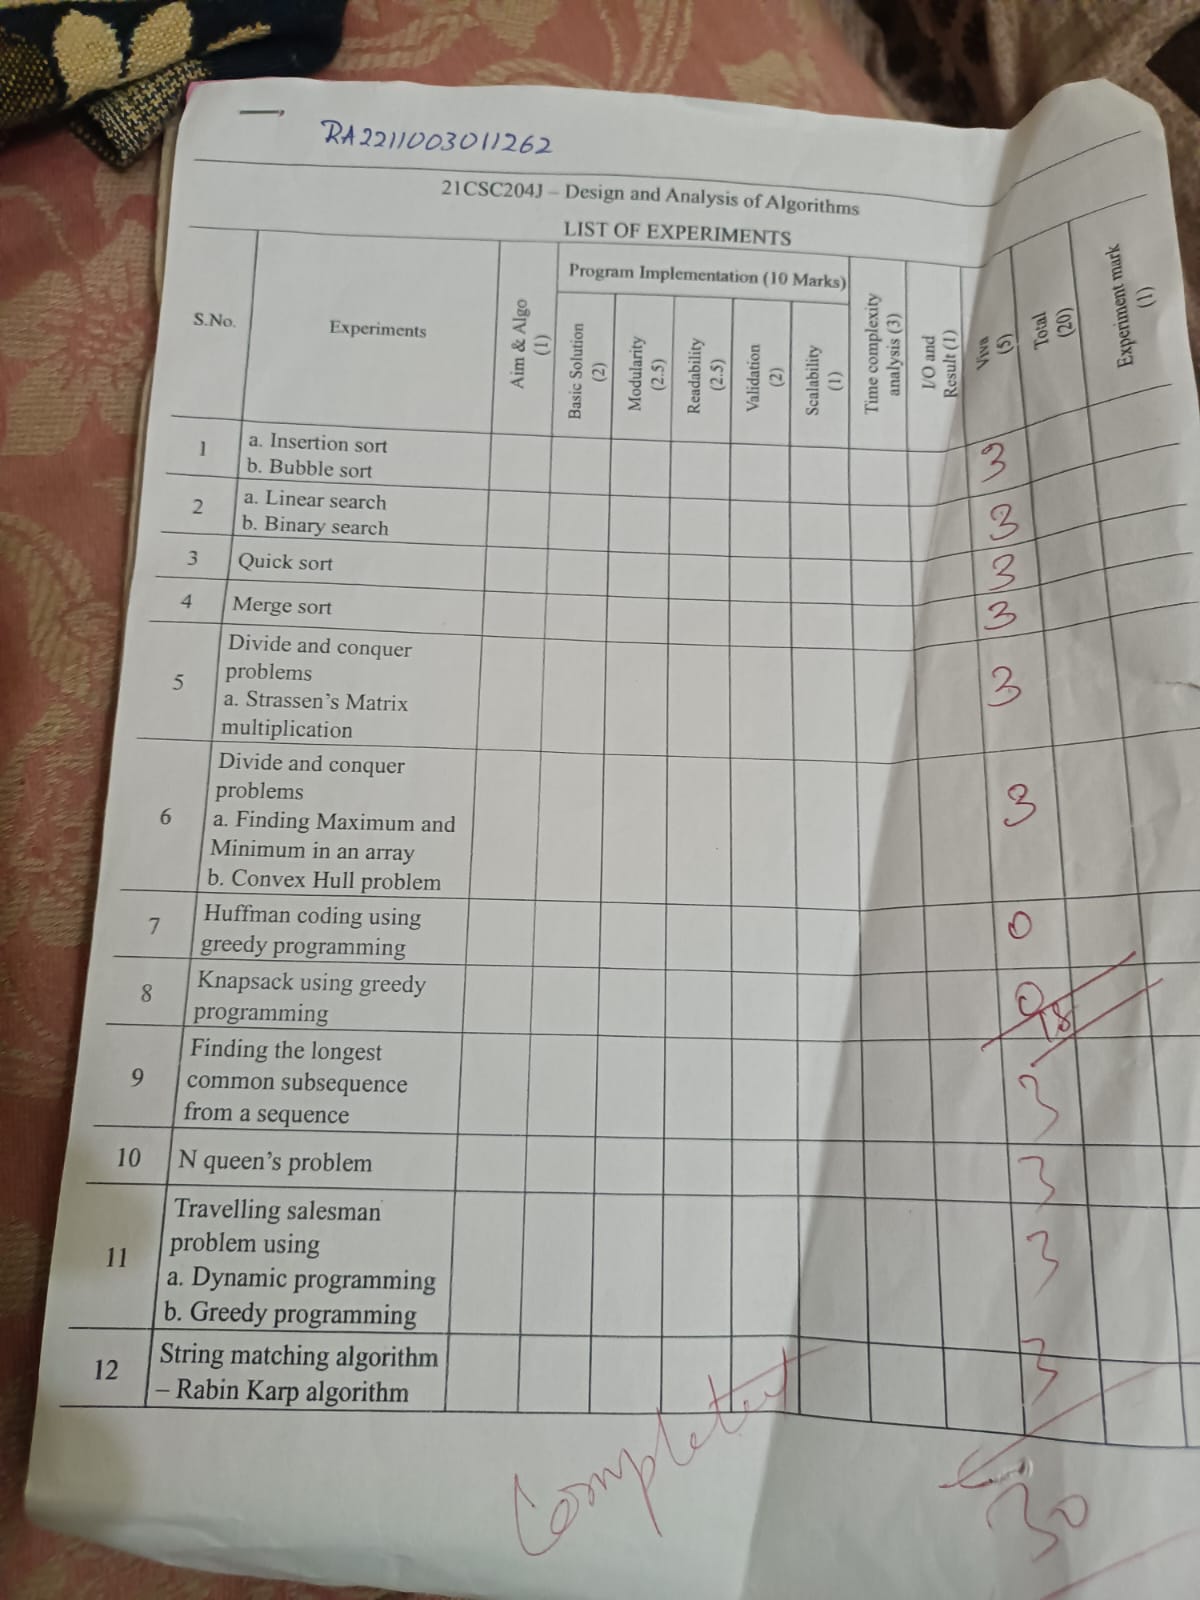 RA2211003011262
21CSC204J – Design and Analysis of Algorithms
LIST OF EXPERIMENTS
S.No.
Experiments
Aim & Algo
(1)
Program Implementation (10 Marks)
Basic Solution
(2)
Modularity
(2.5)
Readability
(2.5)
Validation
(2)
Scalability
(1)
Time complexity
analysis (3)
I/O and
Result (1)
Viva
(5)
Total
(20)
Experiment mark
(1)
1
a. Insertion sort
b. Bubble sort
3
2
a. Linear search
b. Binary search
3
3
Quick sort
3
4
Merge sort
3
5
Divide and conquer
problems
a. Strassen's Matrix
multiplication
3
6
Divide and conquer
problems
a. Finding Maximum and
Minimum in an array
b. Convex Hull problem
3
7
Huffman coding using
greedy programming
0
8
Knapsack using greedy
programming
0
18
9
Finding the longest
common subsequence
from a sequence
3
10
N queen's problem
3
11
Travelling salesman
problem using
a. Dynamic programming
b. Greedy programming
3
12
String matching algorithm
– Rabin Karp algorithm
3
Completed
30